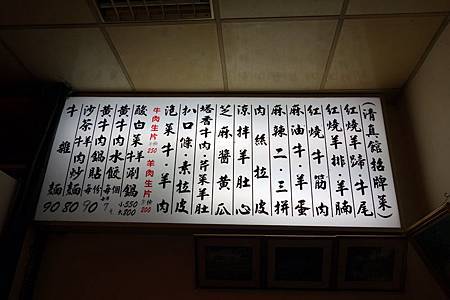 (清真館招牌菜)
紅燒羊蹄·牛尾
紅燒羊排·羊腩
紅燒牛筋肉
麻油牛·羊蛋
麻辣二·三拼
肉絲拉皮
涼拌羊肚心
芝麻醬黃瓜
塔香牛肉·芹菜羊肚
扒口條·素拉皮
泡菜牛羊肉
牛肉生片 250 羊肉生片 200
酸白菜牛羊涮鍋 小550 大800
黃牛肉水餃 每個7
黃牛肉鍋貼 每個
沙茶牛羊肉炒麵 90
牛肉 麵 80
牛雜 麵 90